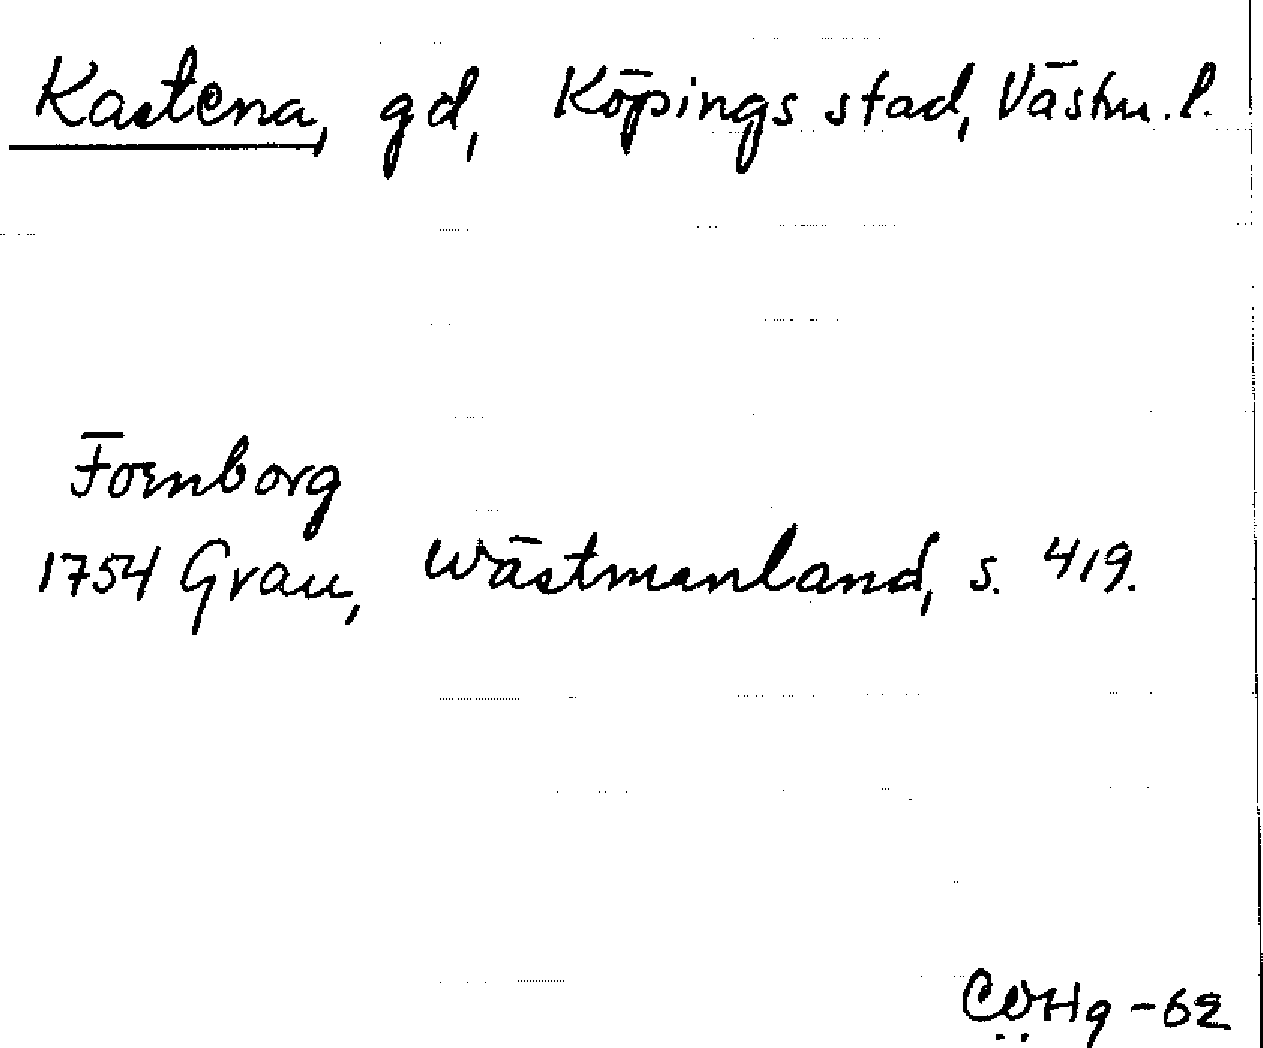 Kastena, gd, Köpings stad, Västm. l.
Fornborg
1754 Grau, Wästmanland, s. 419.
CÖHg -62